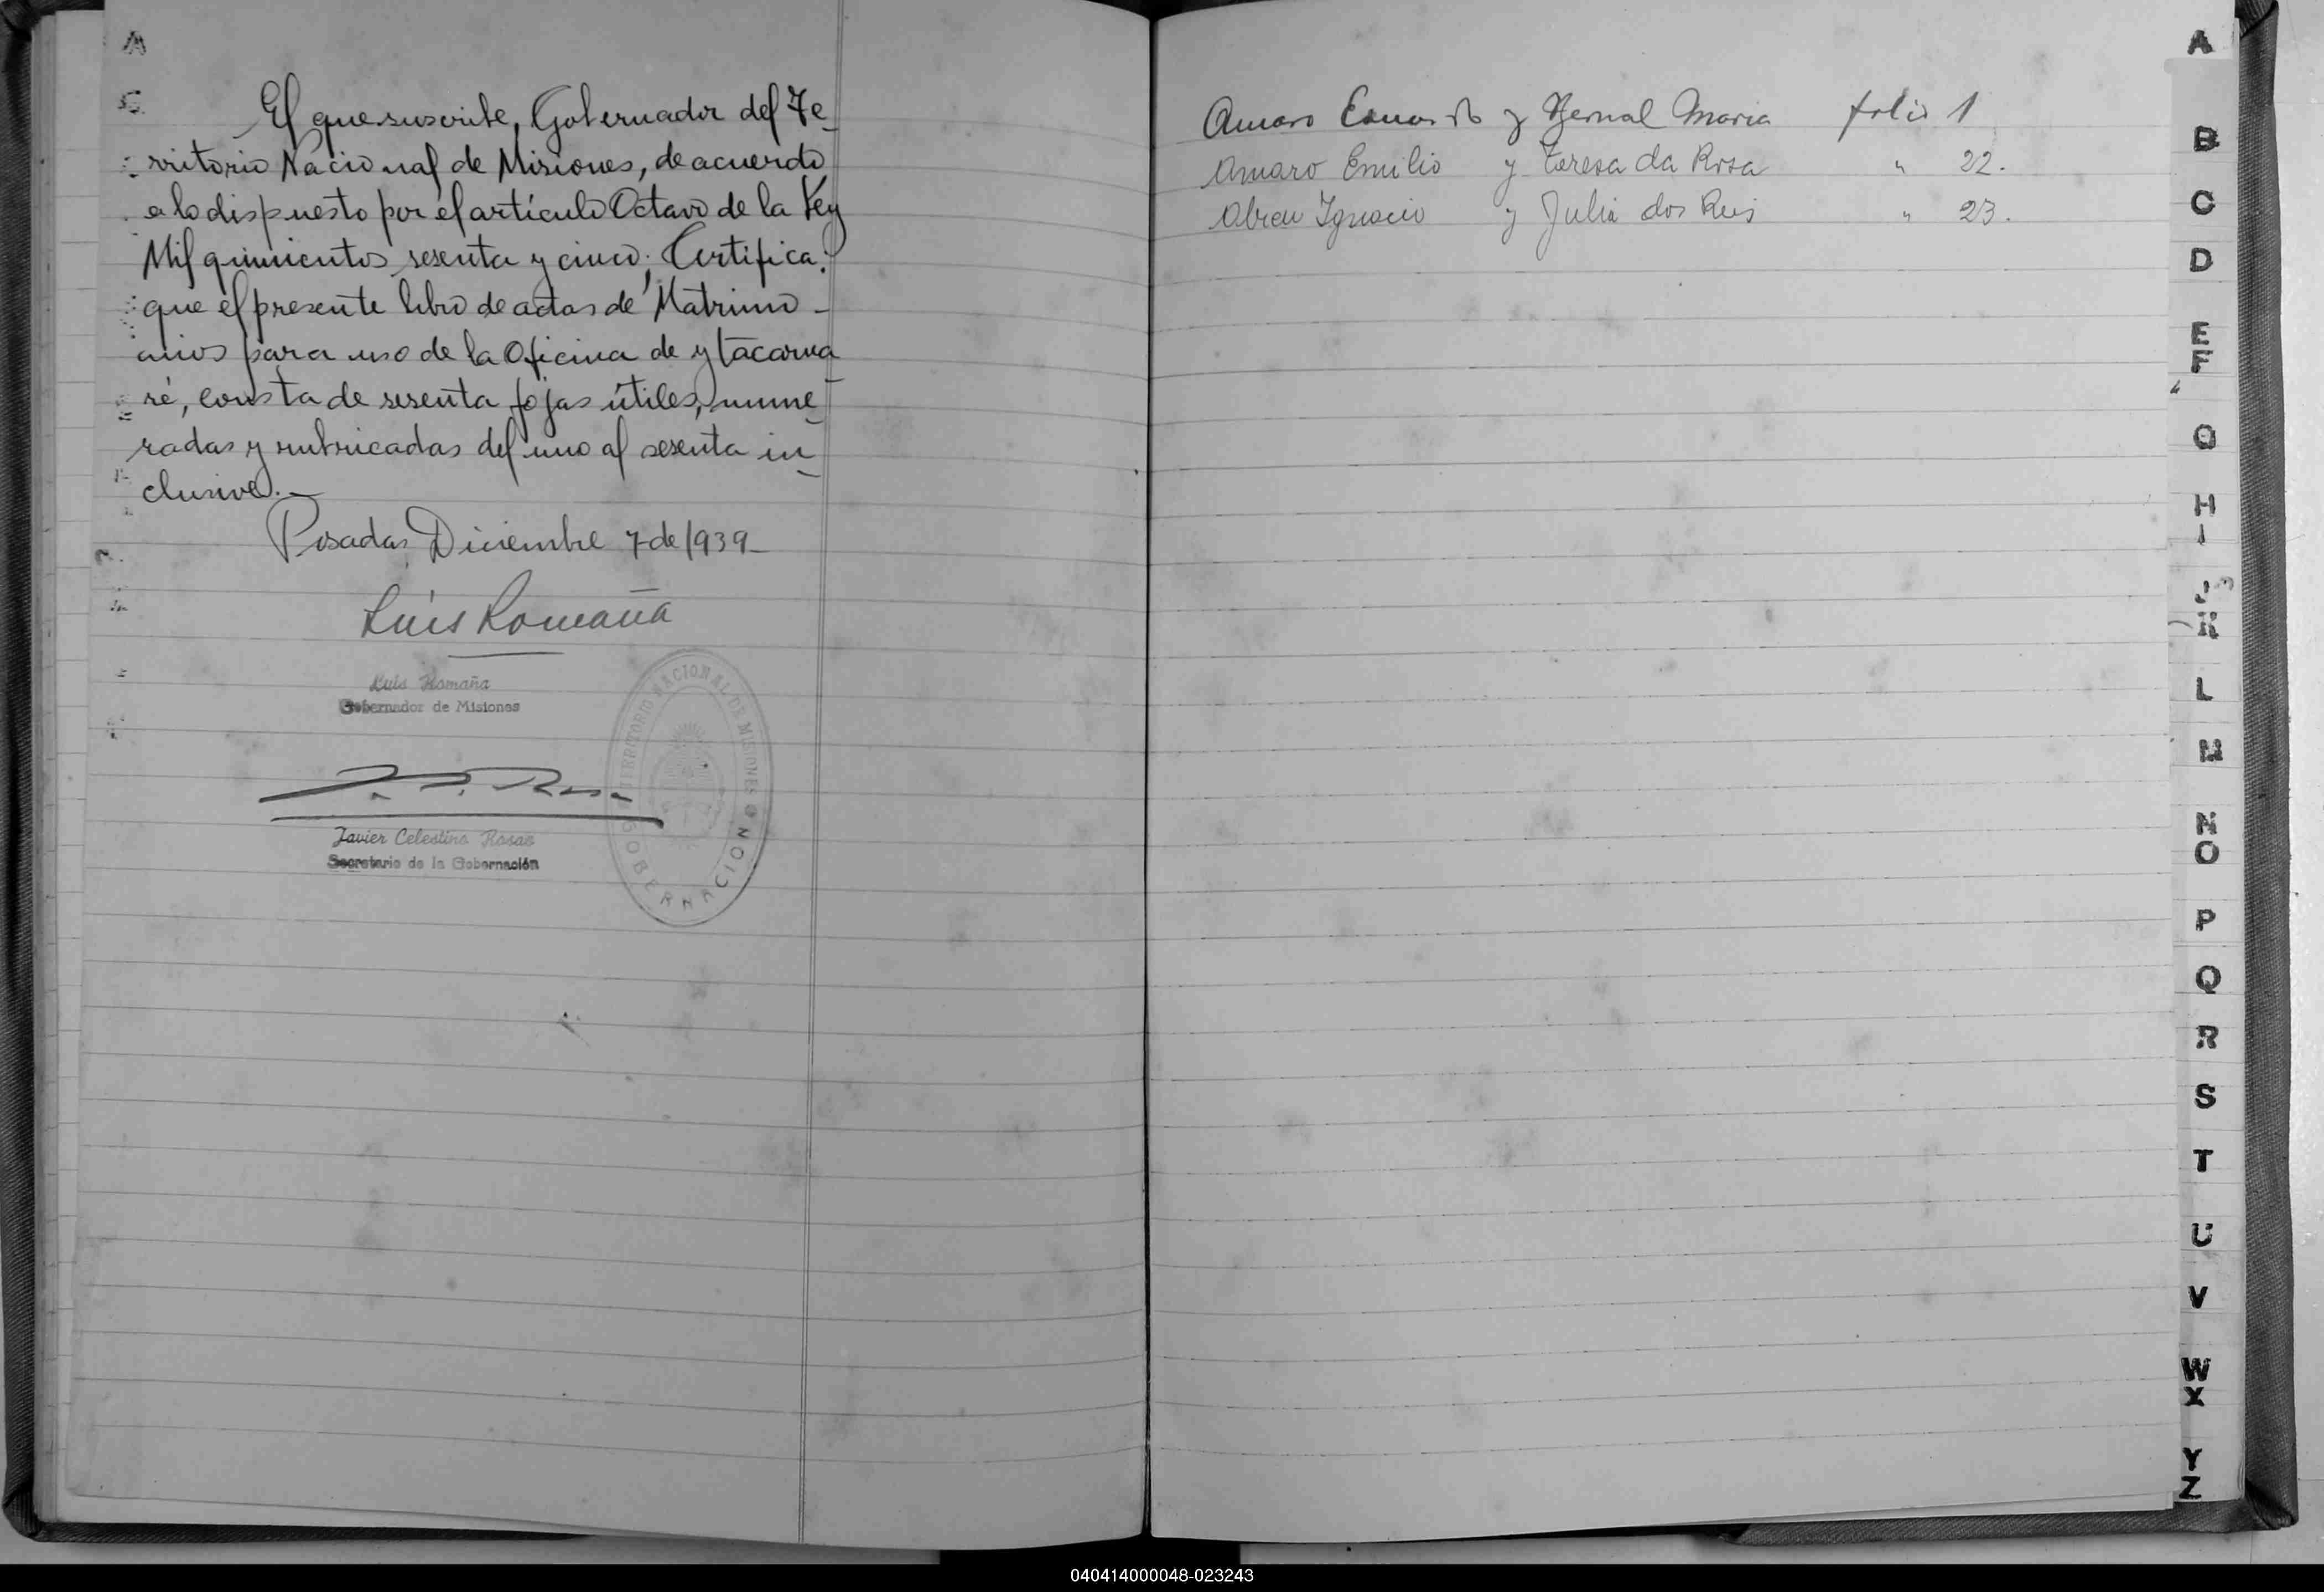 El que suscribe, Gobernador del Te-
rritorio Nacional de Misiones, de acuerdo
a lo dispuesto por el artículo Octavo de la Ley
Mil quinientos sesenta y cinco; Certifica:
que el presente libro de actas de Matrimo-
nios para uso de la Oficina de ytacarua-
ré, consta de sesenta fojas útiles, nume-
radas y rubricadas del uno al sesenta in-
clusive).—
Posadas, Diciembre 7 de 1939—
Luis Romaña
Luis Romaña
Gobernador de Misiones
Javier Celestino Rosas
Secretario de la Gobernación
TERRITORIO NACIONAL DE MISIONES
GOBERNACION
Amaro y Bernal Maria folio 1
Amaro Emilio y Teresa da Rosa " 22.
Abreu Ignacio y Julia dos Reis " 23.
A
B
C
D
E
F
G
H
I
J
K
L
M
N
O
P
Q
R
S
T
U
V
W
X
Y
Z
040414000048-023243